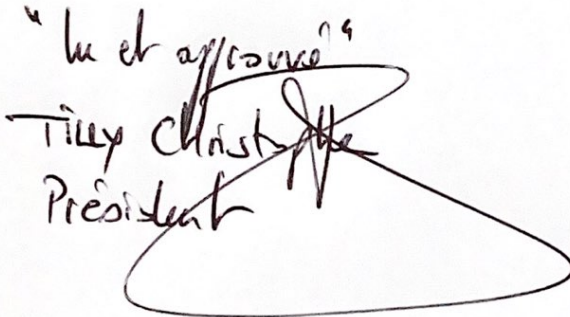 "lu et approuvé"
Tilly Christophe
Président